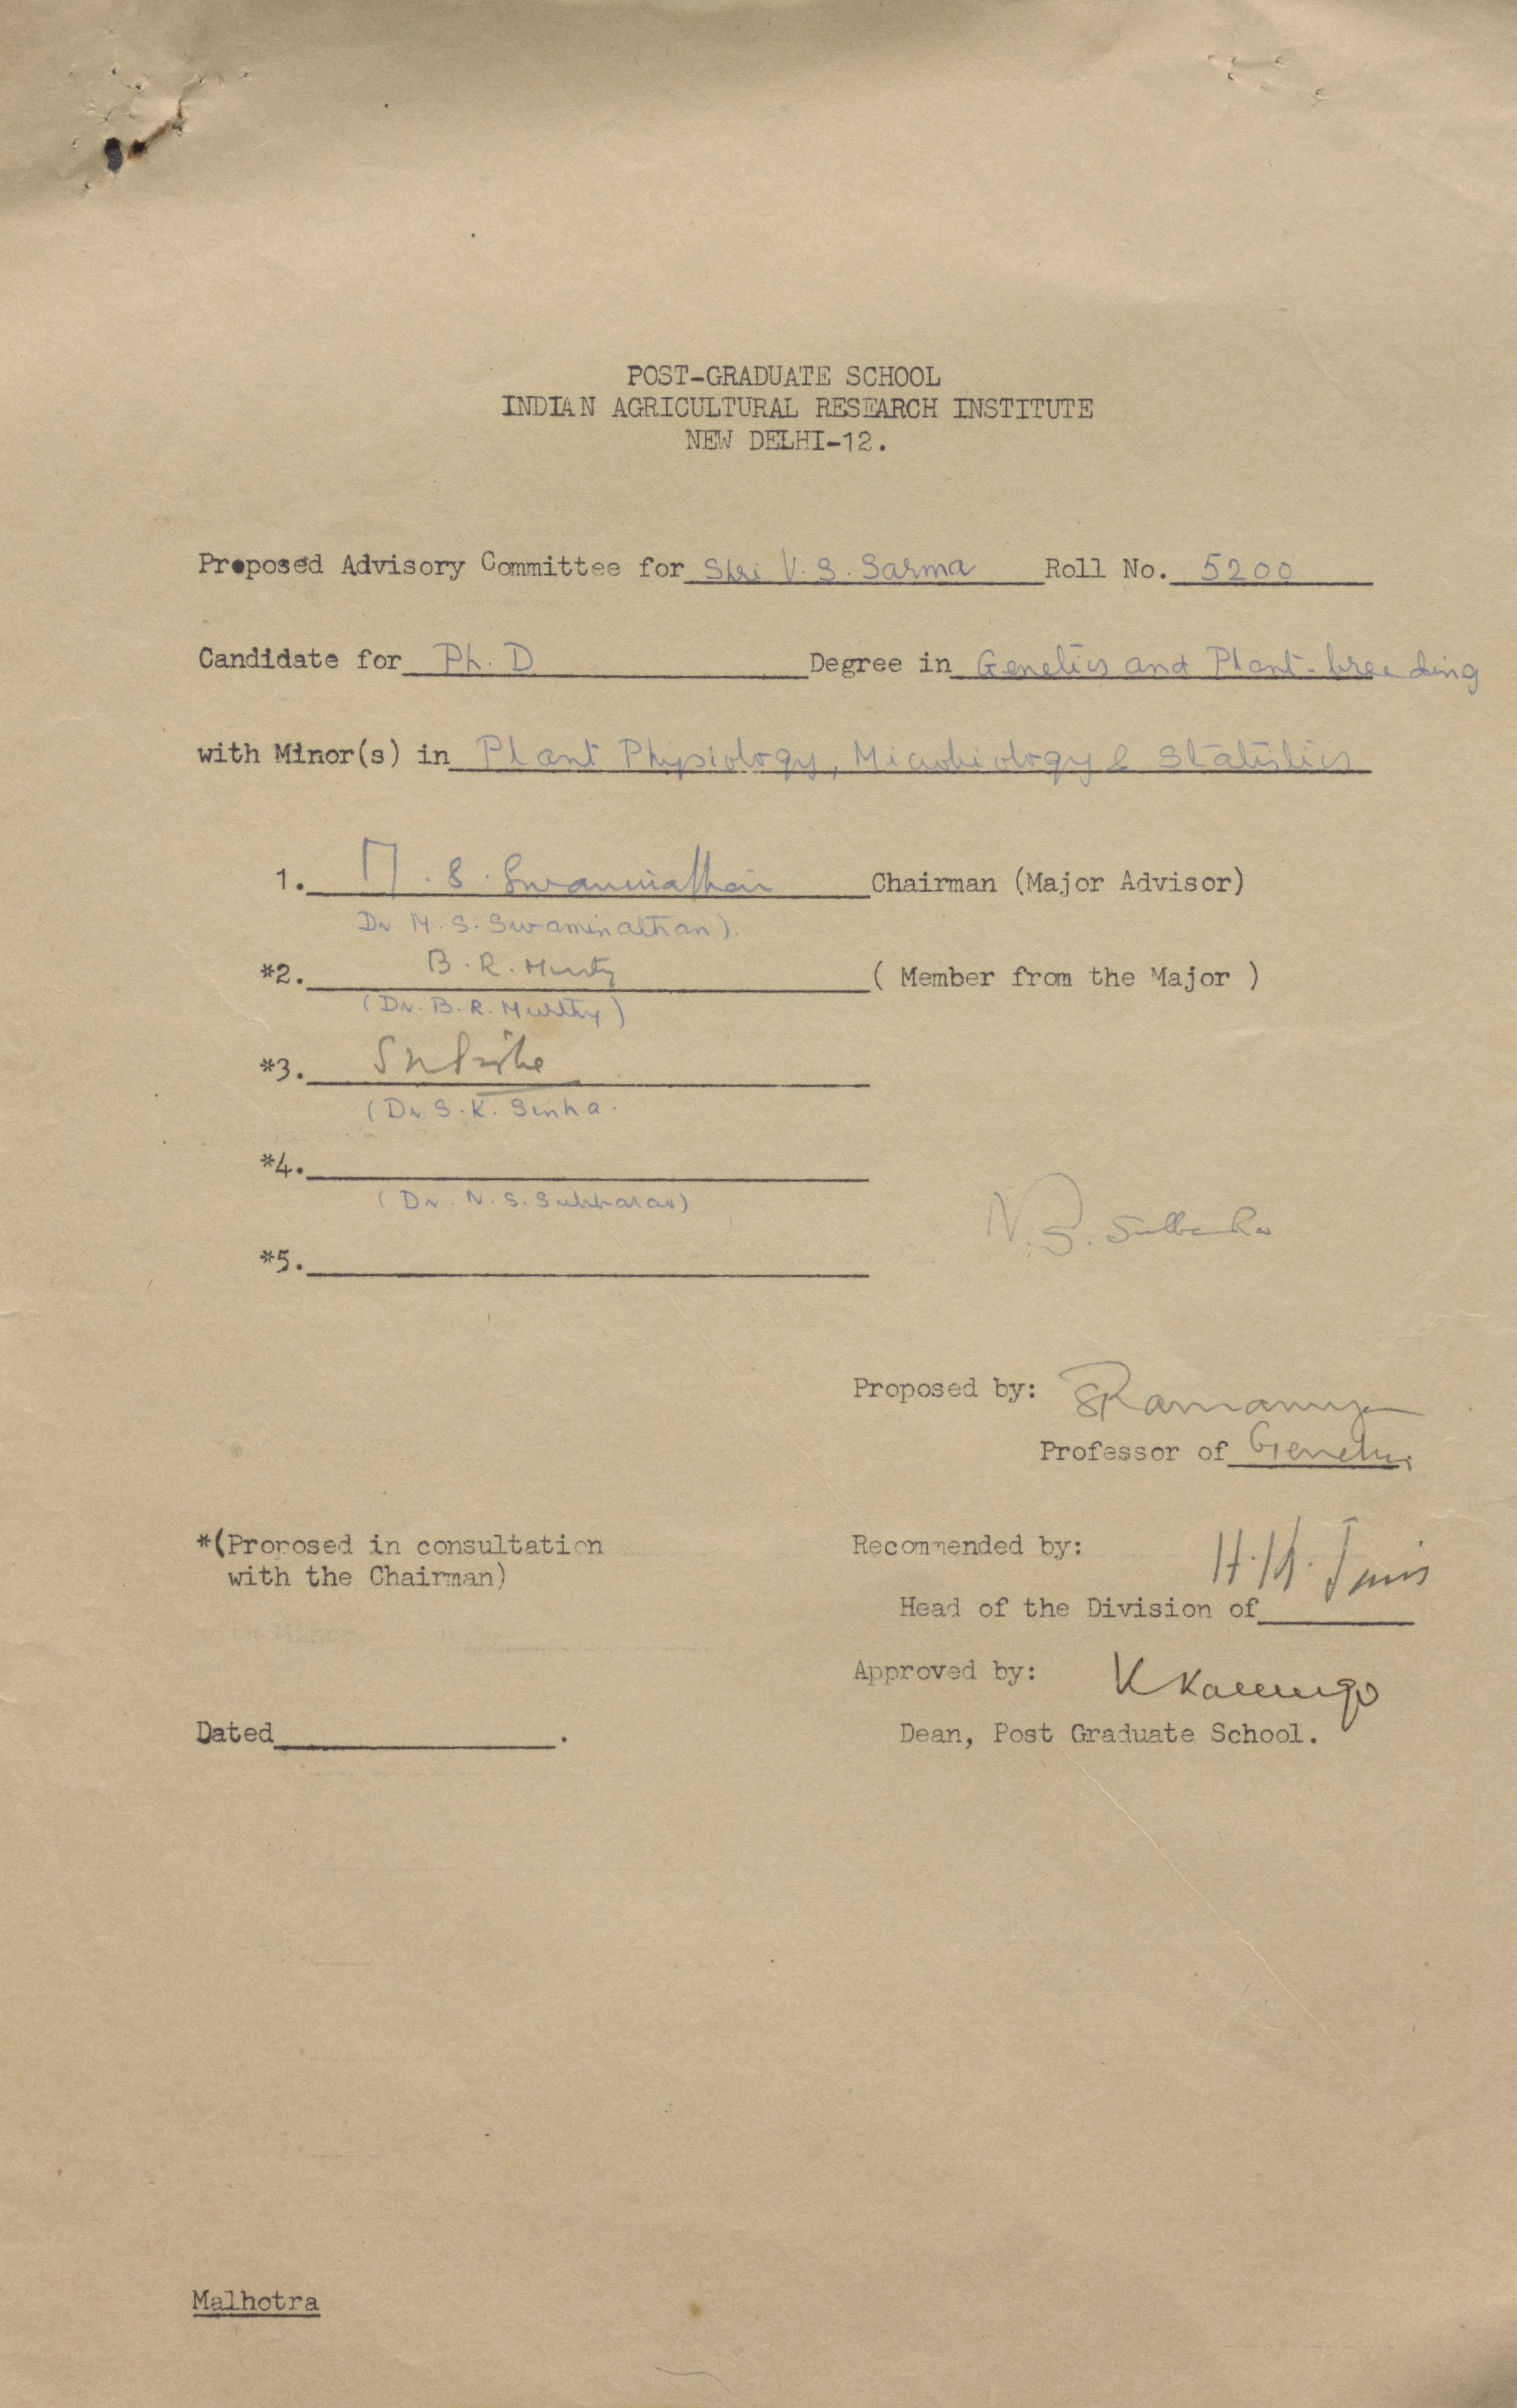 POST-GRADUATE SCHOOL
INDIAN AGRICULTURAL RESEARCH INSTITUTE
NEW DELHI-12.
Proposed Advisory Committee for Shri V. S. Sarma Roll No. 5200
Candidate for Ph. D Degree in Genetics and Plant-breeding
with Minor(s) in Plant Physiology, Microbiology & Statistics
1. M. S. Swaminathan Chairman (Major Advisor)
Dr M. S. Swaminathan).
*2. B. R. Murty ( Member from the Major )
(Dr. B. R. Murthy)
*3. S K Sinha
(Dr S. K. Sinha.
*4.
(Dr. N. S. Subbarao) N. S. Subba Rao
*5.
Proposed by: S Ramanujam
Professor of Genetics
*(Proposed in consultation Recommended by: H. K. Jain
with the Chairman)
Head of the Division of
Approved by:
Dated . Dean, Post Graduate School.
Malhotra